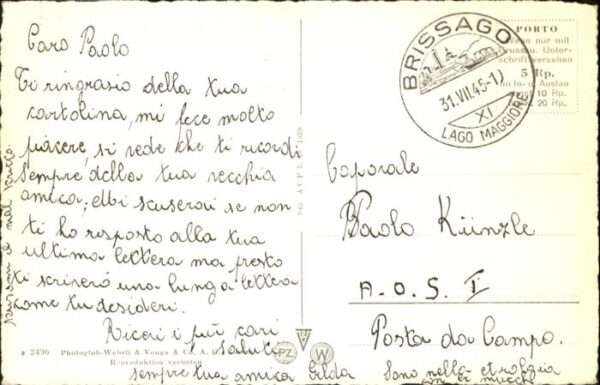 Caro Paolo
Ti ringrasio della tua
cartolina, mi fece molto
piacere, si vede che ti ricordi
sempre della tua vecchia
amica;
scuserai se non
ti ho risposto alla tua
ultima lettera ma presto
ti scriverò una lunga lettera
come tu desideri.
Ricevi i più cari
saluti
sempre tua amica Gilda
mal scritto
BRISSAGO
31.VII.45-1
XI
LAGO MAGGIORE
PORTO
wenn nur mit
Gruss u. Unter-
schrift versehen
5 Rp.
im In- u. Ausland
10 Rp.
20 Rp.
Caporale
Paolo Künzle
A.O.S. I
Posta da Campo.
Sono nella
a 2496 Photoglob-Wehrli & Vouga & Co. A.
Reproduktion verboten
PZ
W